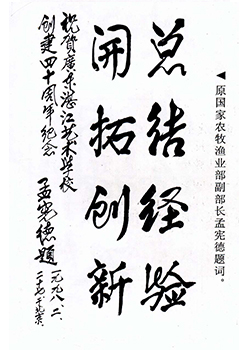 ◀原国家农牧渔业部副部长孟宪德题词。
总结经验
开拓创新
祝贺广东湛江艺术学校
创建四十周年纪念
孟宪德题
一九九八、二、
二十七、于北京、